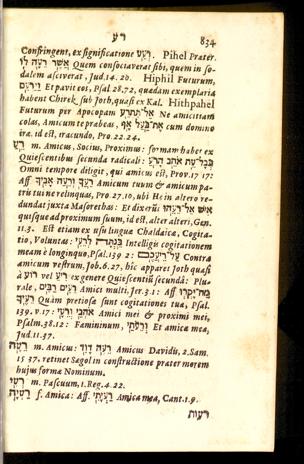 רע 834
Confringent, ex significatione רָעַע. Pihel Præter.
אֲשֶׁר רֵעָה לוֹ Quem consociaverat sibi, quem in so-
dalem asciverat, Jud. 14. 20. Hiphil Futurum,
וַיִּרְעֵם Et pavit eos, Psal. 78. 72, quædam exemplaria
habent Chirek sub Joth, quasi ex Kal. Hithpahel
Futurum per Apocopam אַל־תִּתְרַע Ne amicitiam
colas, Amicum te præbeas, אֶת־בַּעַל אָף cum domino
iræ. id est, iracundo, Pro. 22. 24.
רֵעַ m. Amicus, Socius, Proximus: formam habet ex
Quiescentibus secunda radicali: בְּכָל־עֵת אֹהֵב הָרֵעַ
Omni tempore diligit, qui amicus est, Prov. 17. 17:
Aff. רֵעֲךָ וְרֵעַ אָבִיךָ Amicum tuum & amicum pa-
tris tui ne relinquas, Pro. 27. 10, ubi He in altero re-
dundat juxta Masorethas: Et dixerūt אִישׁ אֶל־רֵעֵהוּ
quisque ad proximum suum, id est, alter alteri, Gen.
11. 3. Est etiam ex usu linguæ Chaldaicæ, Cogita-
tio, Voluntas: בַּנְתָּה לְרֵעִי Intelligis cogitationem
meam è longinquo, Psal. 139. 2: עַל־רֵעֲכֶם Contra
amicum vestrum, Job. 6. 27, hic apparet Joth quasi
à רוּעַ vel רִיעַ vel ex genere Quiescentiū secundâ: Plu-
rale, רֵעִים רַבִּים Amici multi, Jer. 3. 1: Aff.
רֵעֶיךָ Quàm pretiosæ sunt cogitationes tuæ, Psal.
139. v. 17: אֹהֲבַי וְרֵעַי Amici mei & proximi mei,
Psalm. 38. 12: Femininum, וְרֵעוֹתַי Et amicæ meæ,
Jud. 11. 37.
רֵעֶה m. Amicus: רֵעֶה דָוִד Amicus Davidis, 2. Sam.
15. 37. retinet Sægol in constructione præter morem
hujus formæ Nominum.
רְעִי m. Pascuum, 1. Reg. 4. 22.
רַעְיָה f. Amica: Aff. רַעְיָתִי Amica mea, Cant. 1. 9.
רעות